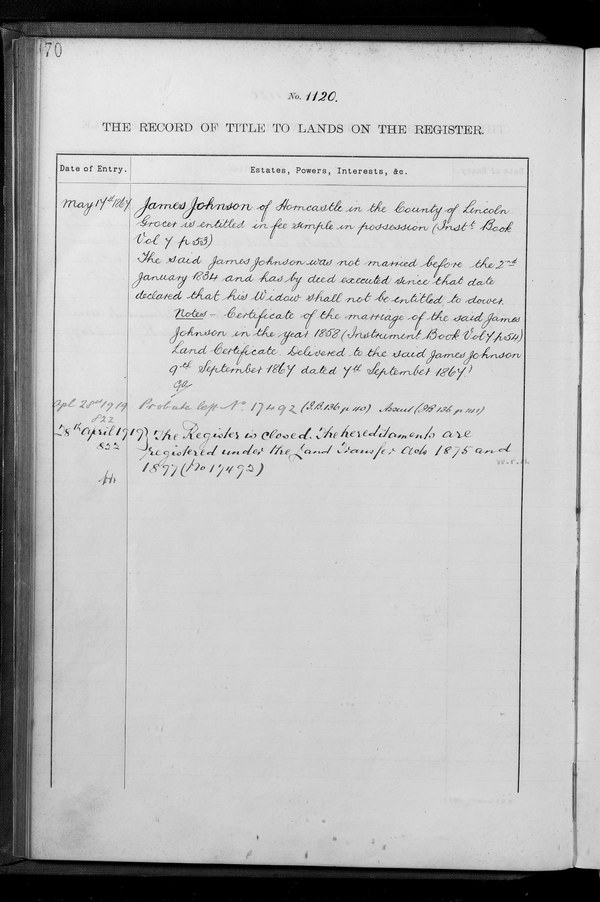 70
No. 1120.
THE RECORD OF TITLE TO LANDS ON THE REGISTER.
Date of Entry.
Estates, Powers, Interests, &c.
May 17th 1867
James Johnson of Horncastle in the County of Lincoln
Grocer is entitled in fee simple in possession (Instt Book
Vol 7 p 53)
The said James Johnson was not married before the 2nd
January 1834 and has by deed executed since that date
declared that his Widow shall not be entitled to dower.
Notes - Certificate of the marriage of the said James
Johnson in the year 1858 (Instrument Book Vol 7 p 54)
Land Certificate delivered to the said James Johnson
9th September 1867 dated 7th September 1867
Apl 28th 1919 Probate No 17492 (I.B. 136 p 140) Assent (I.B. 136 p 141)
822
28th April 1919 } The Register is closed. The hereditaments are
822 registered under the Land Transfer Acts 1875 and
1897 (No 17492)